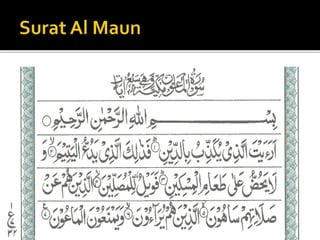 Surat Al Maun
سُورَةُ الْمَاعُونِ مَكِّيَّةٌ وَهِيَ سَبْعُ آيَاتٍ
بِسْمِ اللهِ الرَّحْمٰنِ الرَّحِيْمِ
اَرَءَيْتَ الَّذِيْ يُكَذِّبُ بِالدِّيْنِ فَذٰلِكَ الَّذِيْ يَدُعُّ الْيَتِيْمَ وَ
لَا يَحُضُّ عَلٰى طَعَامِ الْمِسْكِيْنِ فَوَيْلٌ لِّلْمُصَلِّيْنَ الَّذِيْنَ هُمْ عَنْ
صَلَاتِهِمْ سَاهُوْنَ الَّذِيْنَ هُمْ يُرَآءُوْنَ وَيَمْنَعُوْنَ الْمَاعُوْنَ